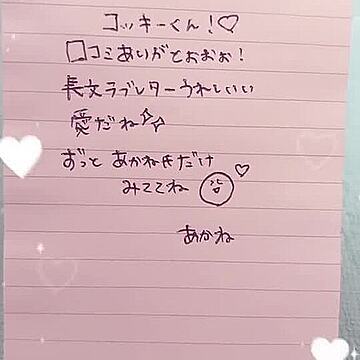 コッキーくん!♡
口コミありがとおおお!
長文ラブレターうれしいい
愛だね☆☆
ずっと あかねだけ
みててね ♡
あかね